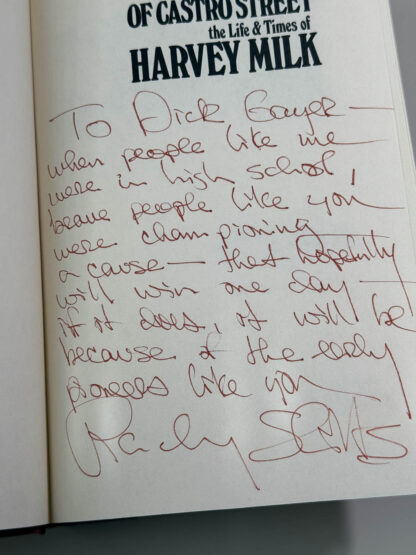 OF CASTRO STREET
the Life & Times of
HARVEY MILK
To Dick Gayer —
when people like me
were in high school,
brave people like you
were championing
a cause — that hopefully
will win one day —
if it does, it will be
because of the early
pioneers like you
Randy Shilts